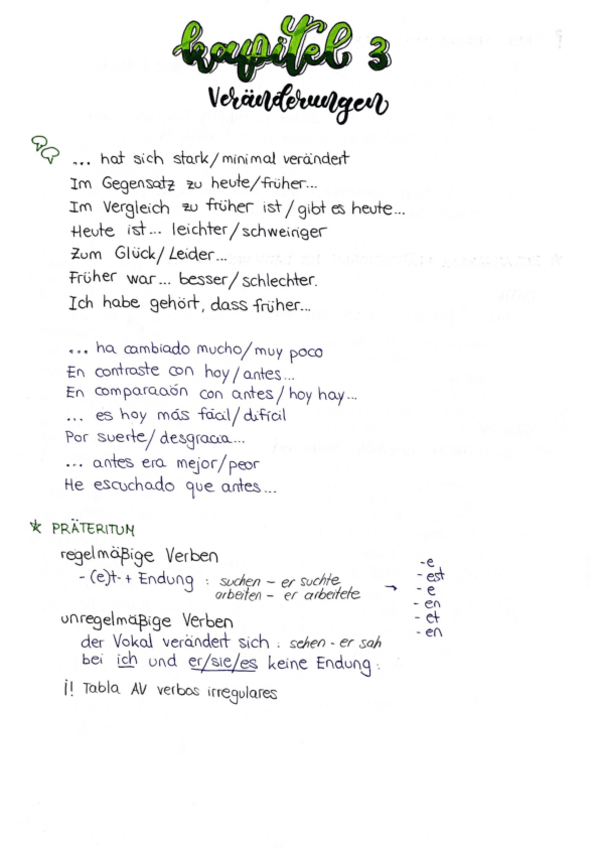 Kapitel 3
Veränderungen
... hat sich stark/minimal verändert
Im Gegensatz zu heute/früher...
Im Vergleich zu früher ist/gibt es heute...
Heute ist... leichter/schweiriger
Zum Glück/Leider...
Früher war... besser/schlechter.
Ich habe gehört, dass früher...
... ha cambiado mucho/muy poco
En contraste con hoy/antes...
En comparación con antes/hoy hay...
... es hoy más fácil/difícil
Por suerte/desgracia...
... antes era mejor/peor
He escuchado que antes...
* PRÄTERITUM
regelmäßige Verben
-(e)t- + Endung : suchen – er suchte
arbeiten – er arbeitete
→
-e
-est
-e
-en
-et
-en
unregelmäßige Verben
der Vokal verändert sich : sehen - er sah
bei ich und er/sie/es keine Endung:
¡! Tabla AV verbos irregulares